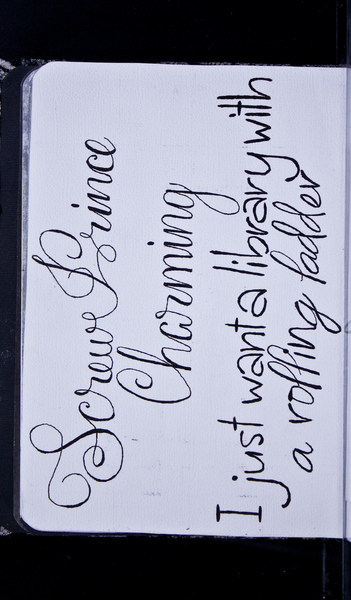 Screw Prince
Charming
I just want a library with
a rolling ladder